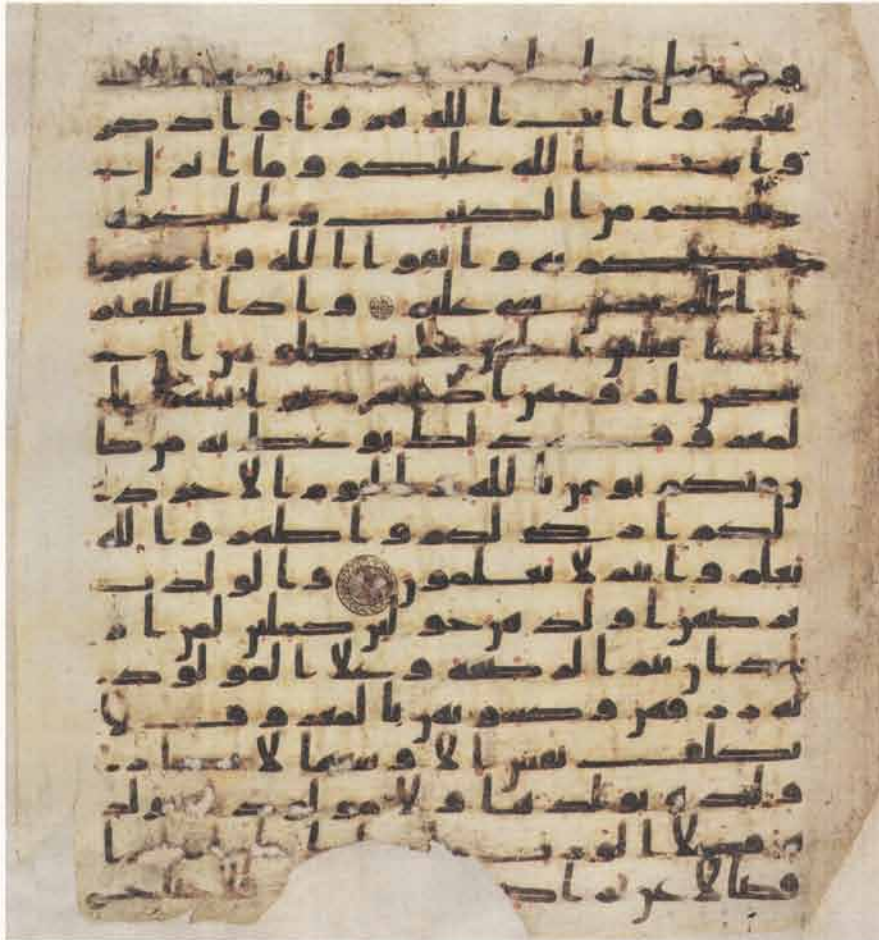 تتخذوا ايت الله هزوا واذكر
وا نعمت الله عليكم وما انزل
عليكم من الكتب والحكمة
يعظكم به واتقوا الله واعلموا
ان الله بكل شي عليم واذا طلقتم
النسا فبلغن اجلهن فلا تعضلوهن ان
ينكحن ازوجهن اذا ترضوا بينهم با
لمعروف ذلك يوعظ به من كا
ن منكم يومن بالله واليوم الاخر ذ
لكم ازكى لكم واطهر والله
يعلم وانتم لا تعلمون والولدت
يرضعن اولدهن حولين كملين لمن ار
اد ان يتم الرضعة وعلى المولود
له رزقهن وكسوتهن بالمعروف لا
تكلف نفس الا وسعها لا تضار
ولدة بولدها ولا مولود له بولد
ه وعلى الورث
فصالا عن تراض فلا جناح